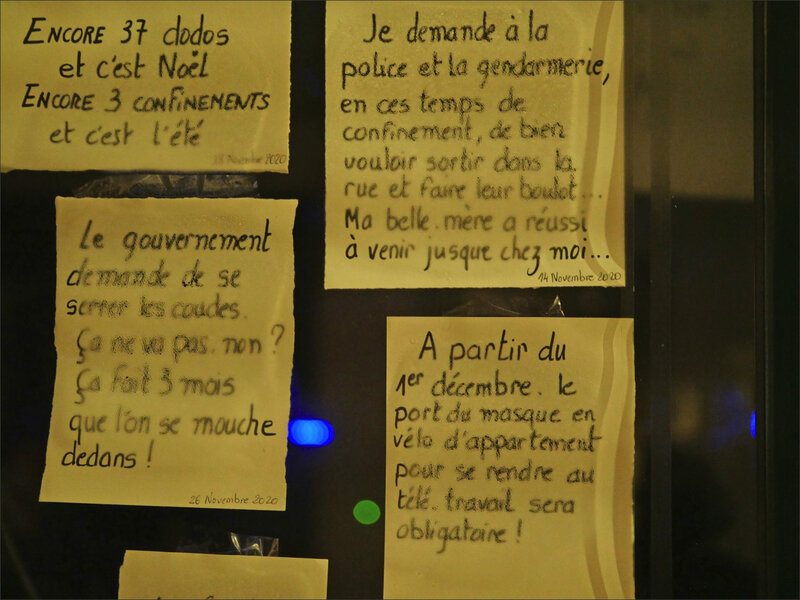 ENCORE 37 dodos
et c'est Noël
ENCORE 3 CONFINEMENTS
et c'est l'été
18 Novembre 2020
Je demande à la
police et la gendarmerie,
en ces temps de
confinement, de bien
vouloir sortir dans la
rue et faire leur boulot...
Ma belle-mère a réussi
à venir jusque chez moi...
14 Novembre 2020
Le gouvernement
demande de se
serrer les coudes.
Ça ne va pas, non ?
Ça fait 3 mois
que l'on se mouche
dedans !
26 Novembre 2020
A partir du
1er décembre, le
port du masque en
vélo d'appartement
pour se rendre au
télé-travail sera
obligatoire !